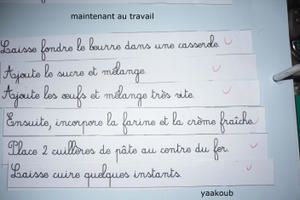 maintenant au travail
Laisse fondre le beurre dans une casserole.
Ajoute le sucre et mélange.
Ajoute les œufs et mélange très vite.
Ensuite, incorpore la farine et la crème fraîche.
Place 2 cuillères de pâte au centre du fer.
Laisse cuire quelques instants.
yaakoub